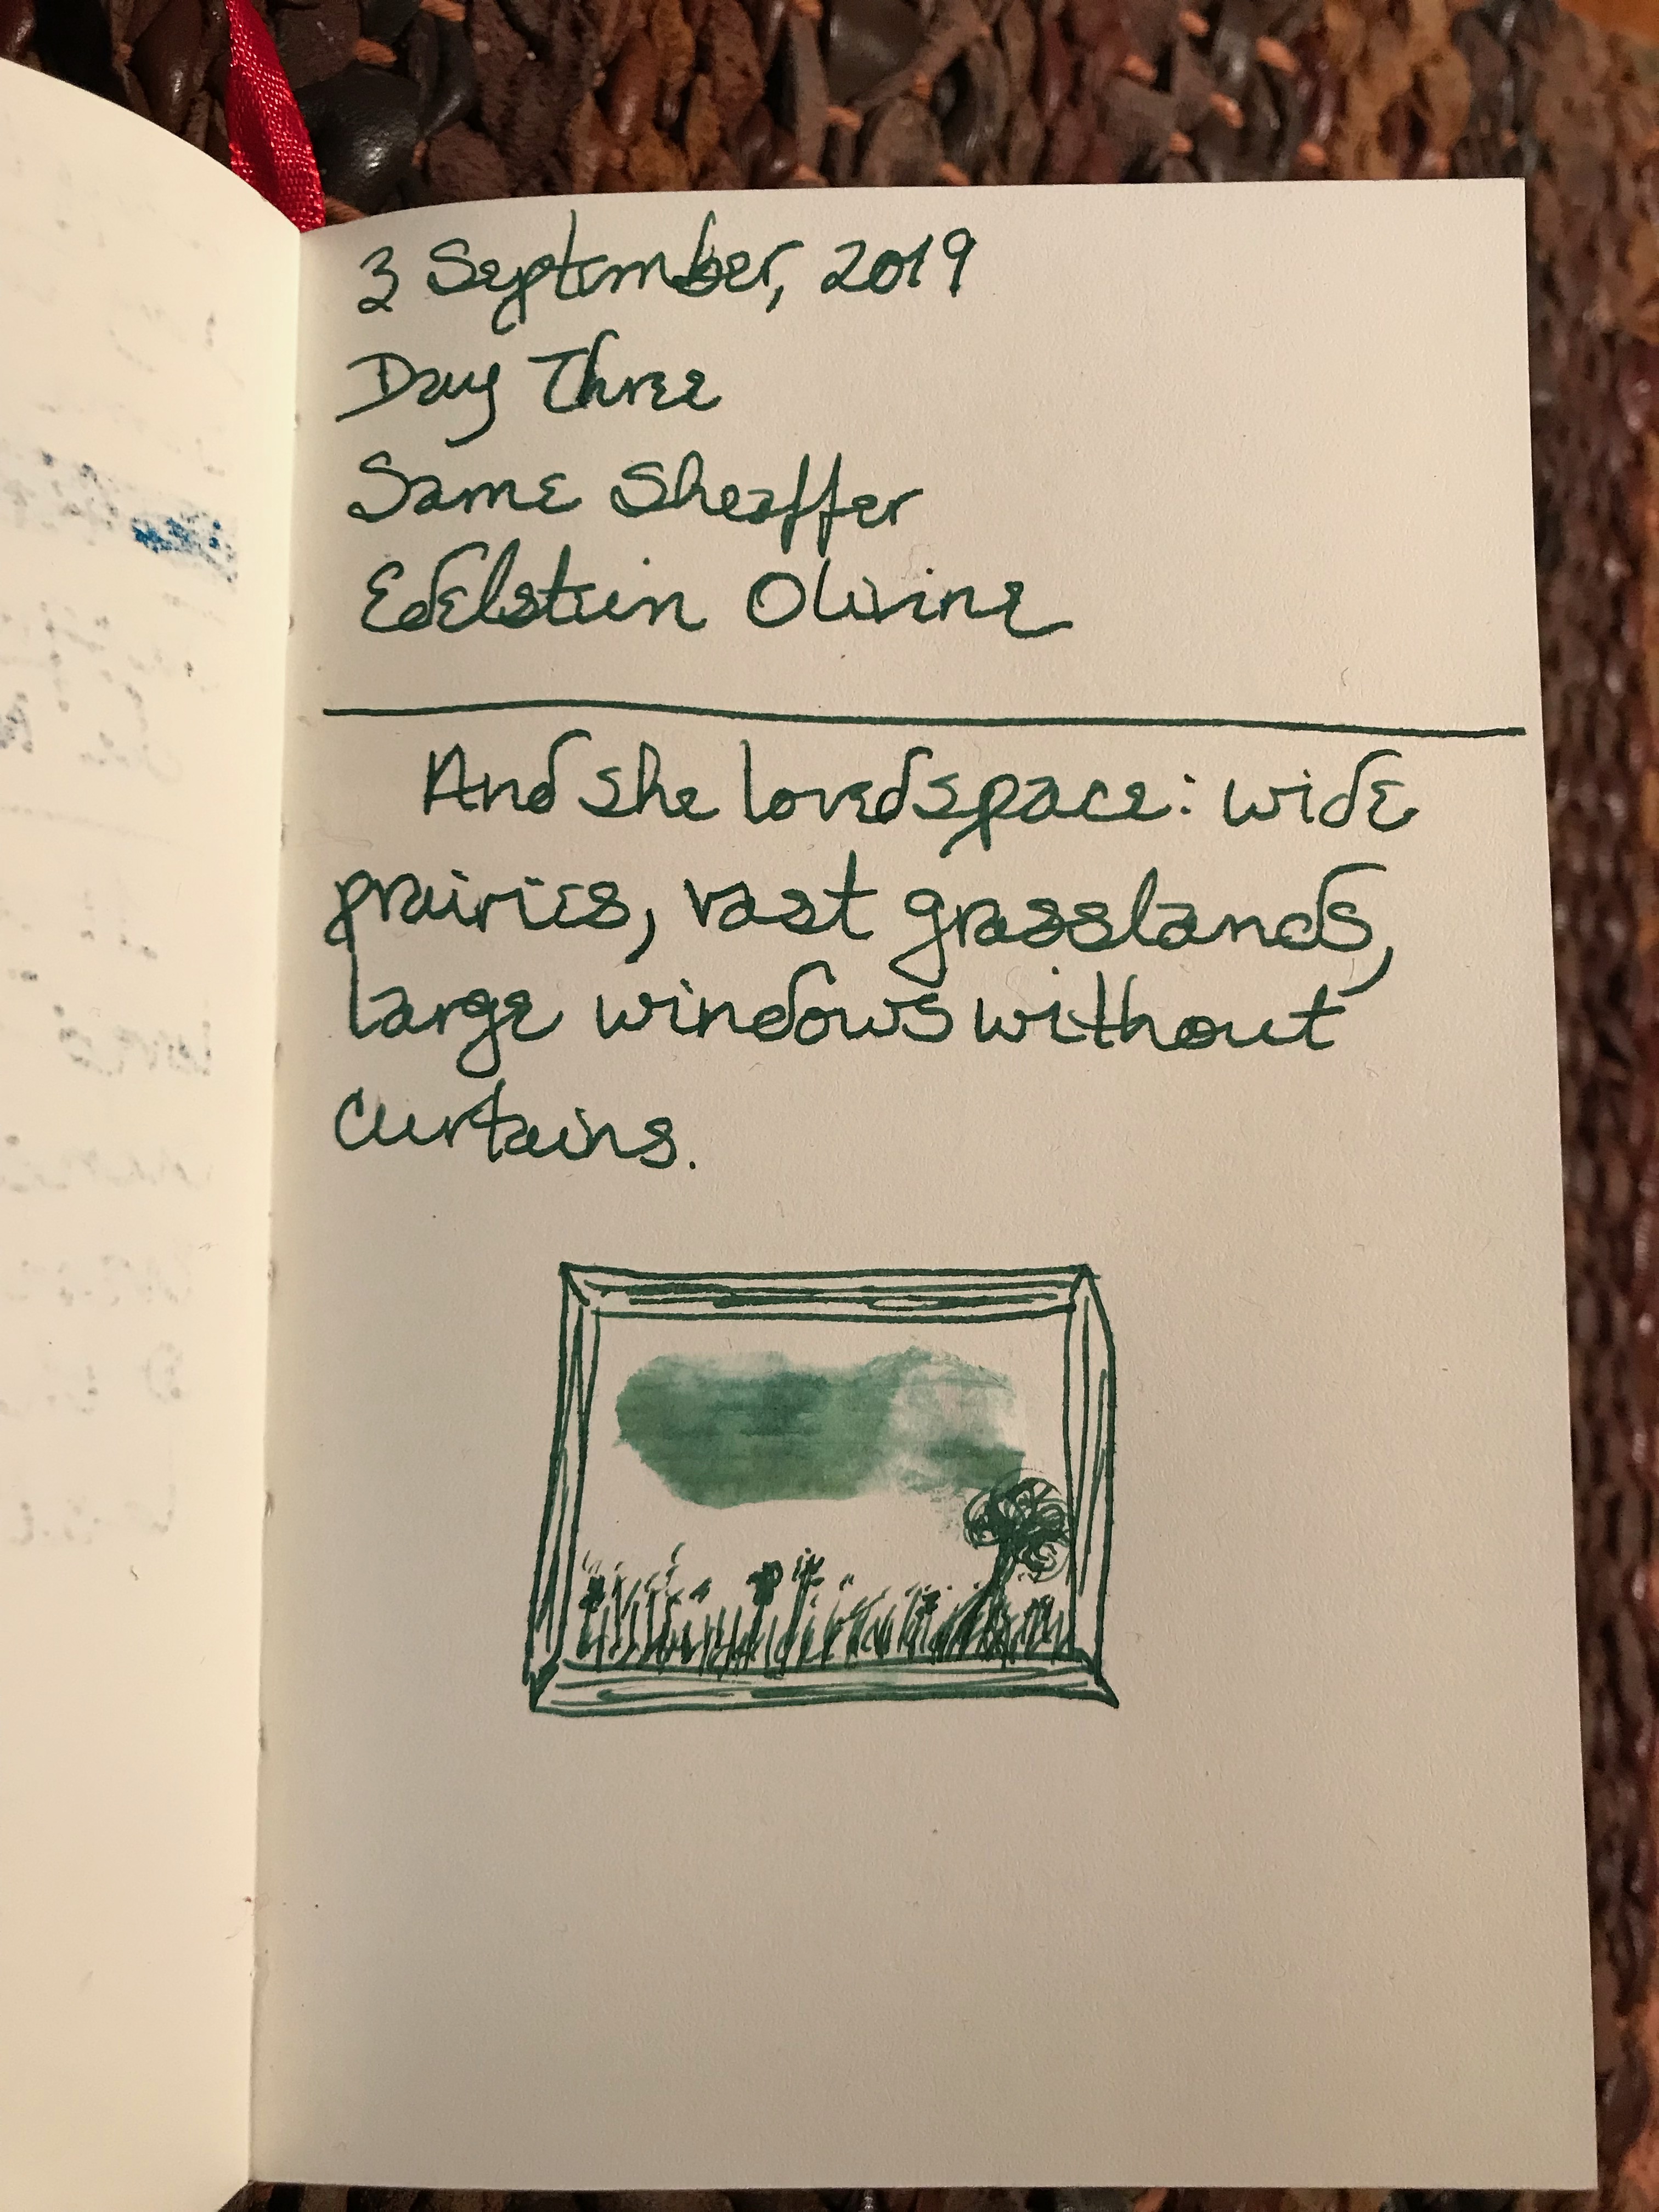 3 September, 2019
Day Three
Same Sheaffer
Edelstein Olivine
And she loved space: wide
prairies, vast grasslands,
large windows without
curtains.